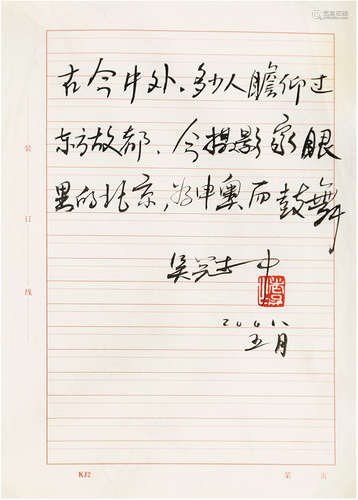 古今中外、多少人瞻仰过
东方故都、今摄影家眼
里的北京，为申奥而鼓舞
吴冠中
2001、
五月
装
订
线
KJ2
第 页